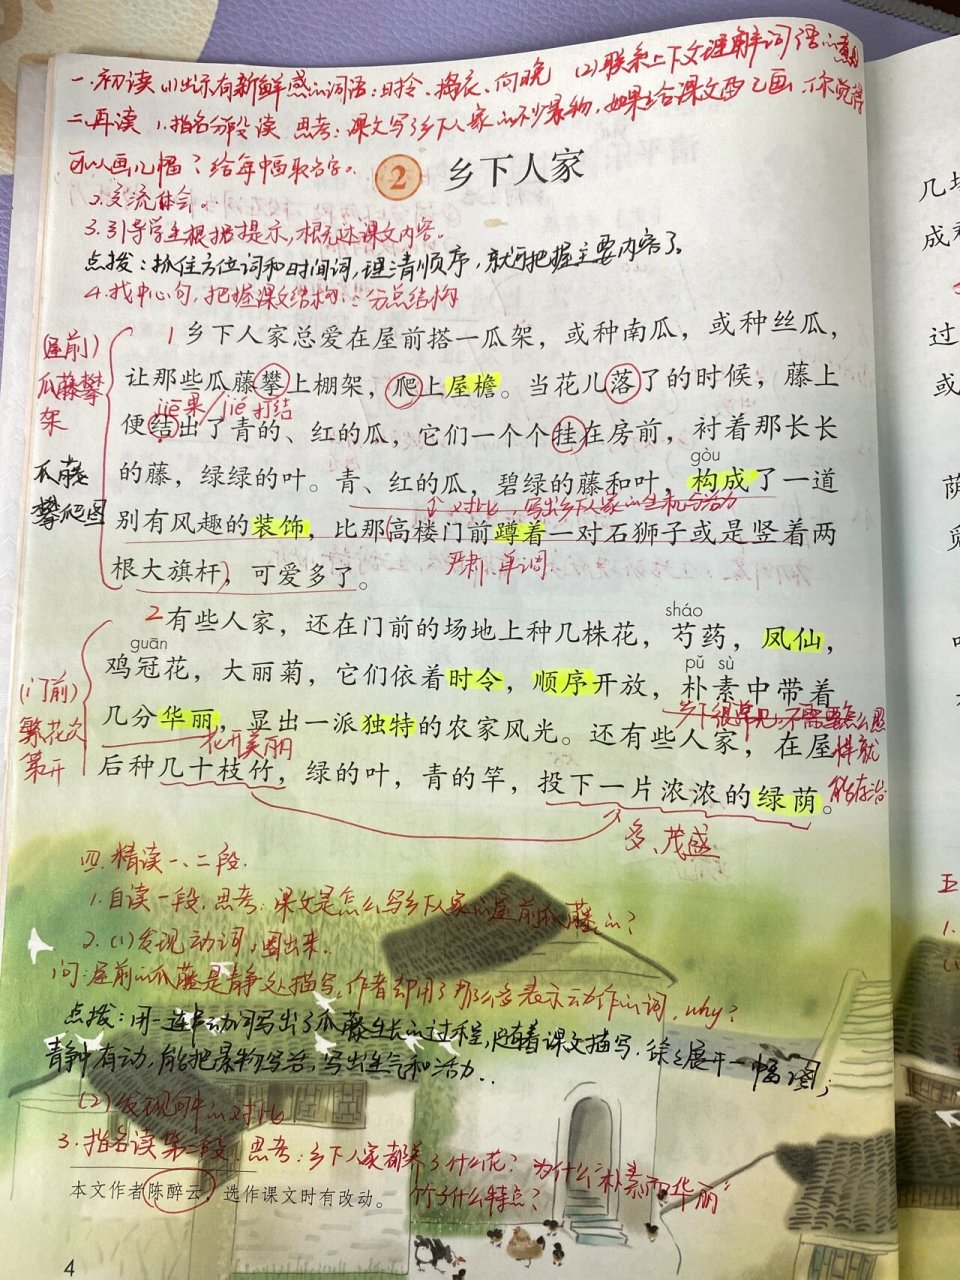 一.初读 (1)出示有新鲜感的词语:时令、捣衣、向晚 (2)联系上下文理解词语的意思
二.再读 1.指名分段读 思考:课文写了乡下人家的不少景物,如果给课文配上画,你觉得
可以画几幅?给每幅取名字。
2 乡下人家
2.交流体会。
3.引导学生根据提示,根据课文内容。
点拨:抓住方位词和时间词,理清顺序,就能把握主要内容了。
4.找中心句,把握课文结构:分总结构
(屋前)
瓜藤攀
架
瓜藤
攀爬图
1 乡下人家总爱在屋前搭一瓜架,或种南瓜,或种丝瓜,
让那些瓜藤攀上棚架,爬上屋檐。当花儿落了的时候,藤上
jiē果 jié打结
便结出了青的、红的瓜,它们一个个挂在房前,衬着那长长
gòu
的藤,绿绿的叶。青、红的瓜,碧绿的藤和叶,构成了一道
对比,写出乡下人家的生机与活力
别有风趣的装饰,比那高楼门前蹲着一对石狮子或是竖着两
严肃、单调
根大旗杆,可爱多了。
sháo
2 有些人家,还在门前的场地上种几株花,芍药,凤仙,
guān pǔ sù
鸡冠花,大丽菊,它们依着时令,顺序开放,朴素中带着
(门前)
繁花次
第开
乡下很常见,不需要怎么照
几分华丽,显出一派独特的农家风光。还有些人家,在屋
样就
花开美丽
后种几十枝竹,绿的叶,青的竿,投下一片浓浓的绿荫。
能存活
多、茂盛
四.精读一、二段.
1.自读一段,思考:课文是怎么写乡下人家的屋前瓜藤的?
2.(1)发现动词,圈出来.
问:屋前的瓜藤是静处描写,作者却用了那么多表示动作的词,why?
点拨:用一连串动词写出了瓜藤生长的过程,随着课文描写,徐徐展开一幅图;
静中有动,能把景物写活,写出生气和活力..
(2)发现句中的对比
3.指名读第二段,思考:乡下人家都养了什么花?为什么"朴素而华丽"
竹子什么特点?
本文作者陈醉云,选作课文时有改动。
4